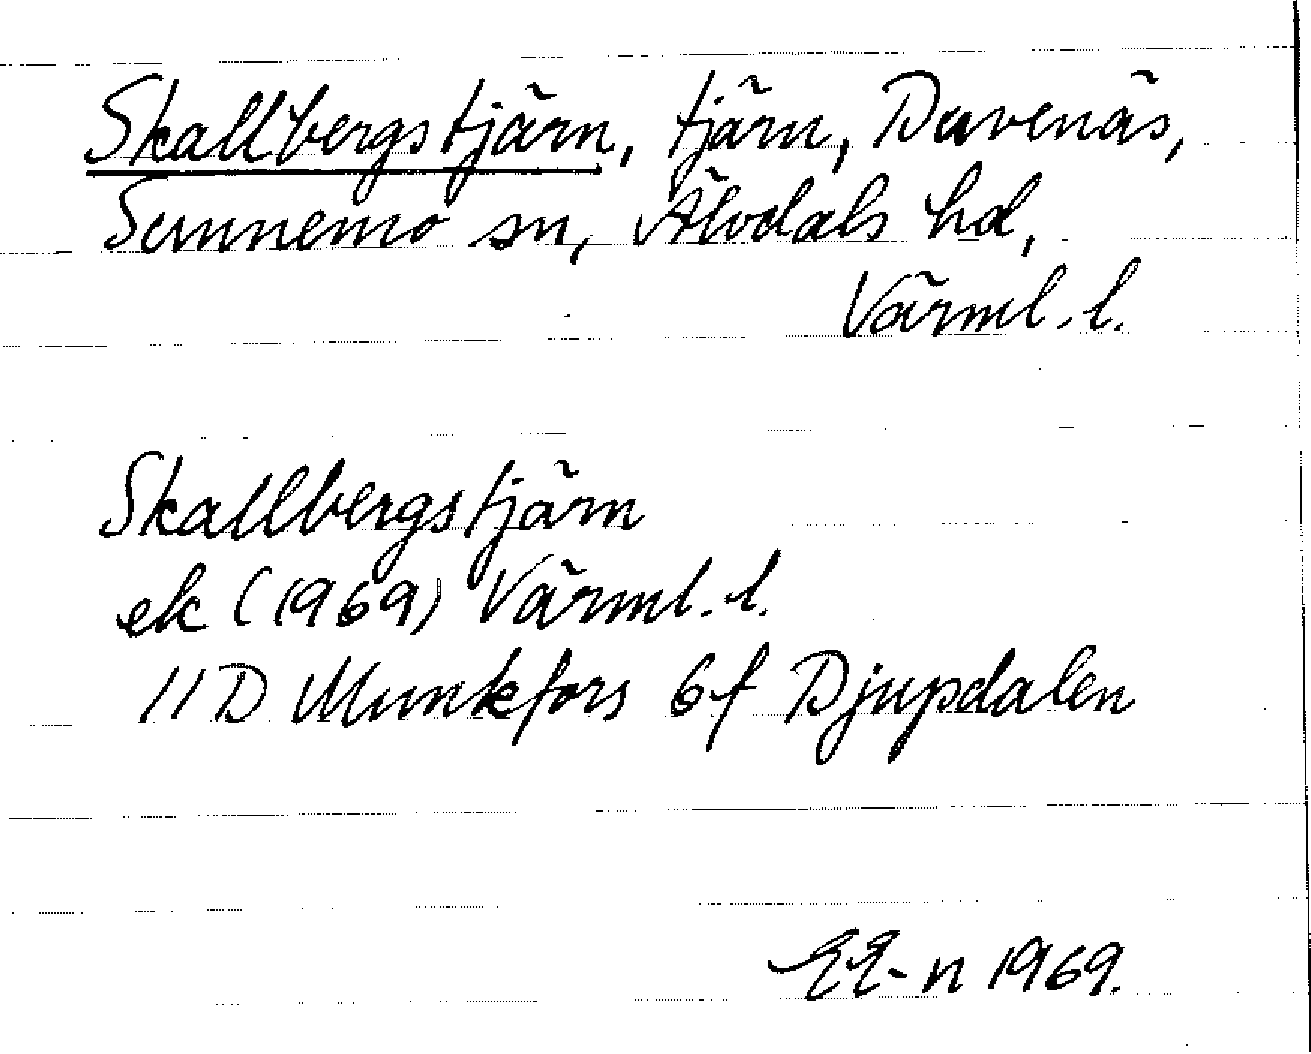 Skallbergstjärn, tjärn, Duvenäs,
Sunnemo sn, Älvdals hd,
Värml. l.
Skallbergstjärn
ek (1969) Värml. l.
11D Munkfors 6f Djupdalen
EE-n 1969.